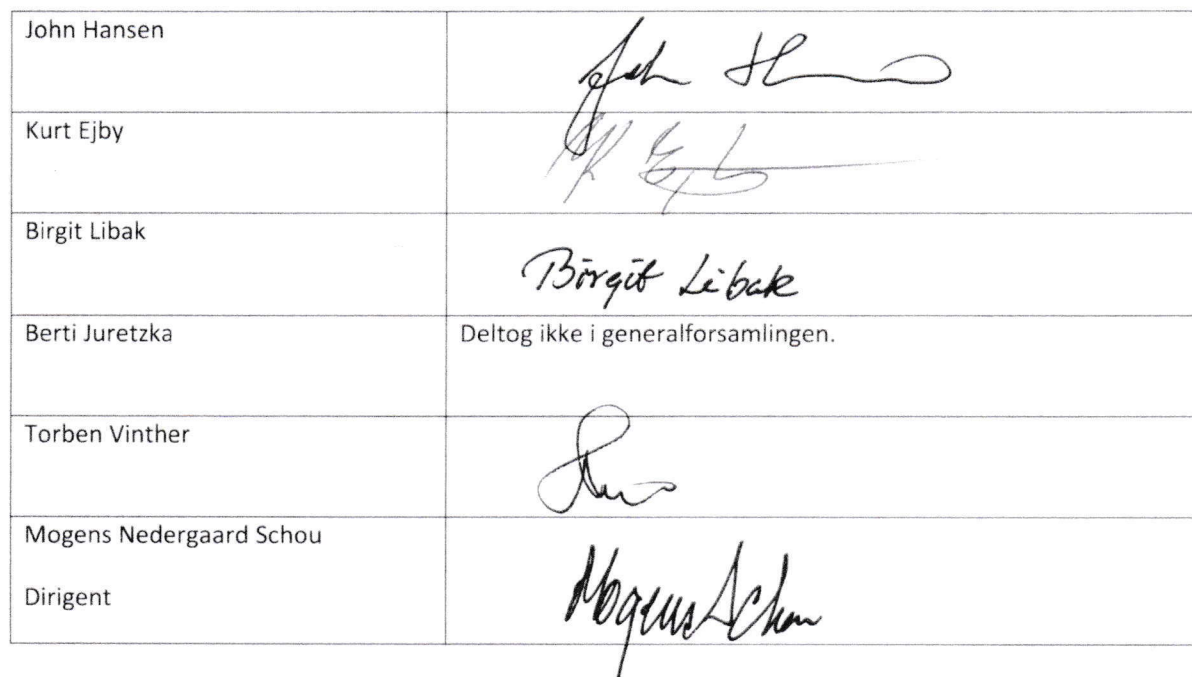 John Hansen
John H
Kurt Ejby
Birgit Libak
Birgit Libak
Berti Juretzka
Deltog ikke i generalforsamlingen.
Torben Vinther
Mogens Nedergaard Schou
Dirigent
Mogens Schou